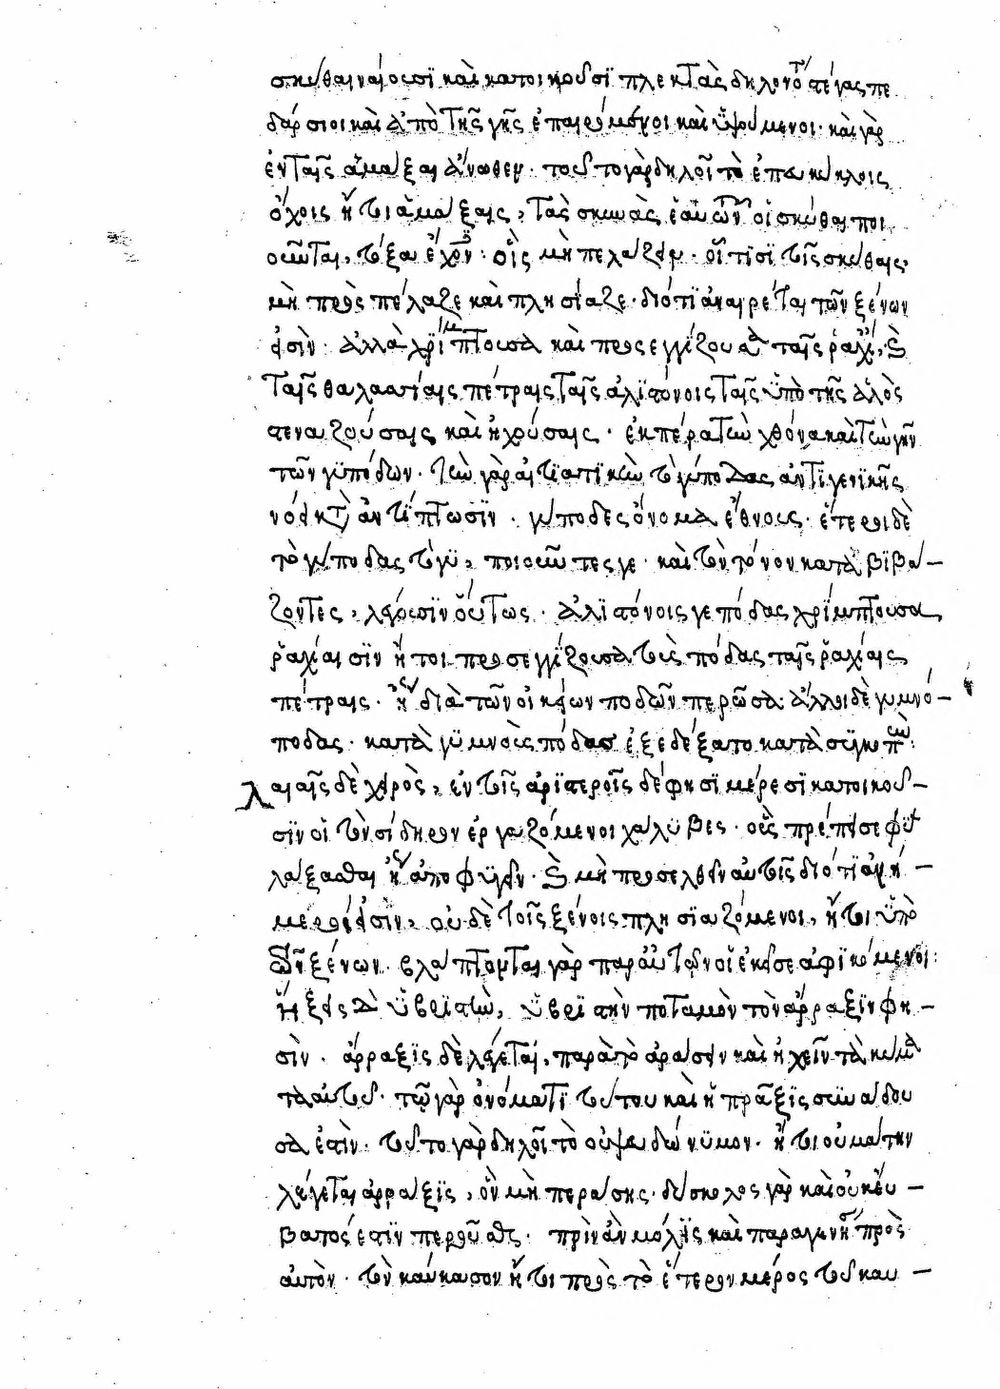 σκύθαι ναίουσϊ καὶ κατοικοῦσϊ πλεκτὰς δηλονότι στέγας πε
δάρσιοι καὶ ἀπὸ τῆς γῆς ἐπαιρόμενοι καὶ ὑψούμενοι· καὶ γὰρ
ἐν ταῖς ἁμάξαι ἄνωθεν· τοῦτο γὰρ δηλοῖ τὸ ἐπ' εὐκύκλοις
ὄχοις ἤτοι ἁμάξαις, τὰς σκηνὰς ἑαυτῶν οἱ σκύθαι ποι
οῦνται, τόξα ἔχον· οἷς μὴ πελάζειν· οἷς τισϊ τοῖς σκύθαις·
μὴ πρὸς πέλαζε καὶ πλησίαζε· διότι ἀναιρέται τῶν ξένων
εἰσὶν· ἀλλὰ χρίμπτουσα καὶ προσεγγίζουσα ταῖς ῥαχίαις,
ταῖς θαλασσίαις πέτραις ταῖς ἁλϊστόνοις ταῖς ὑπὸ τῆς ἁλὸς
στεναζούσαις καὶ ἠχούσαις· ἐκπέρα τὴν χθόνα καὶ τὴν γῆν
τῶν γϋπόδων· τὴν γὰρ αἰτιατικὴν τὸ γύποδας ἀντὶ γενϊκῆς
νόει κατὰ ἀντίπτωσϊν· γύποδες ὄνομα ἔθνους· ἕτεροι δὲ
τὸ γύποδας τὸ γϋ, ποιοῦντες γε· καὶ τὸν τόνον καταβϊβά–
ζοντες, λέγουσϊν οὕτως· ἁλϊστόνοις γε πόδας χρίμπτουσα
ῥαχίαισϊν ἤτοι προσεγγίζουσα τοὺς πόδας ταῖς ῥαχίαις
πέτραις· ἢ διὰ τῶν οἰκείων ποδῶν περῶσα· ἄλλοι δὲ γυμνό–
ποδας· κατὰ γϋμνοὺς πόδας ἐξεδέξατο κατὰ συγκοπὴν:
λαιᾶς δὲ χειρὸς, ἐν τοῖς ἀριστεροῖς δέ φησϊ μέρεσϊ κατοικοῦ–
σϊν οἱ τὸν σίδηρον ἐργαζόμενοι χάλϋβες· οὓς πρέπει σε φϋ
λάξασθαι ἢ ἀποφϋγεῖν· μὴ προσελθεῖν αὐτοῖς διότι ἀνή–
μεροί εἰσϊν, οὐδὲ τοῖς ξένοις πλησϊαζόμενοι, ἤτοι ὑπὸ
τῶν ξένων· βλάπτονται γὰρ παρ' αὐτῶν οἱ ἐκεῖσε ἀφϊκόμενοι:
ἥξεις δ' ὑβρϊστὴν, ὑβρϊστὴν ποταμὸν τὸν ἀρραξϊν φη–
σὶν· ἀρραξϊς δὲ λέγεται, παρὰ τὸ ἀράσσειν καὶ ἠχεῖν τὰ κύμα
τα αὐτοῦ· τῷ γὰρ ὀνόματϊ τούτου καὶ ἡ πρᾶξϊς σϋνάδου
σα ἐστὶν· τοῦτο γὰρ δηλοῖ τὸ οὐ ψευδώνϋμον· ἤτοι οὐ μάτην
λέγεται ἀρραξϊς, ὃν μὴ περάσῃς· δύσκολος γὰρ καὶ οὐκ εὔ–
βατός ἐστϊν περοῦσθαι· πρὶν ἂν μόλϊς καὶ παραγένῃ πρὸς
αὐτὸν· τὸν καύκασον ἤτοι πρὸς τὸ ἕτερον μέρος τοῦ καυ–